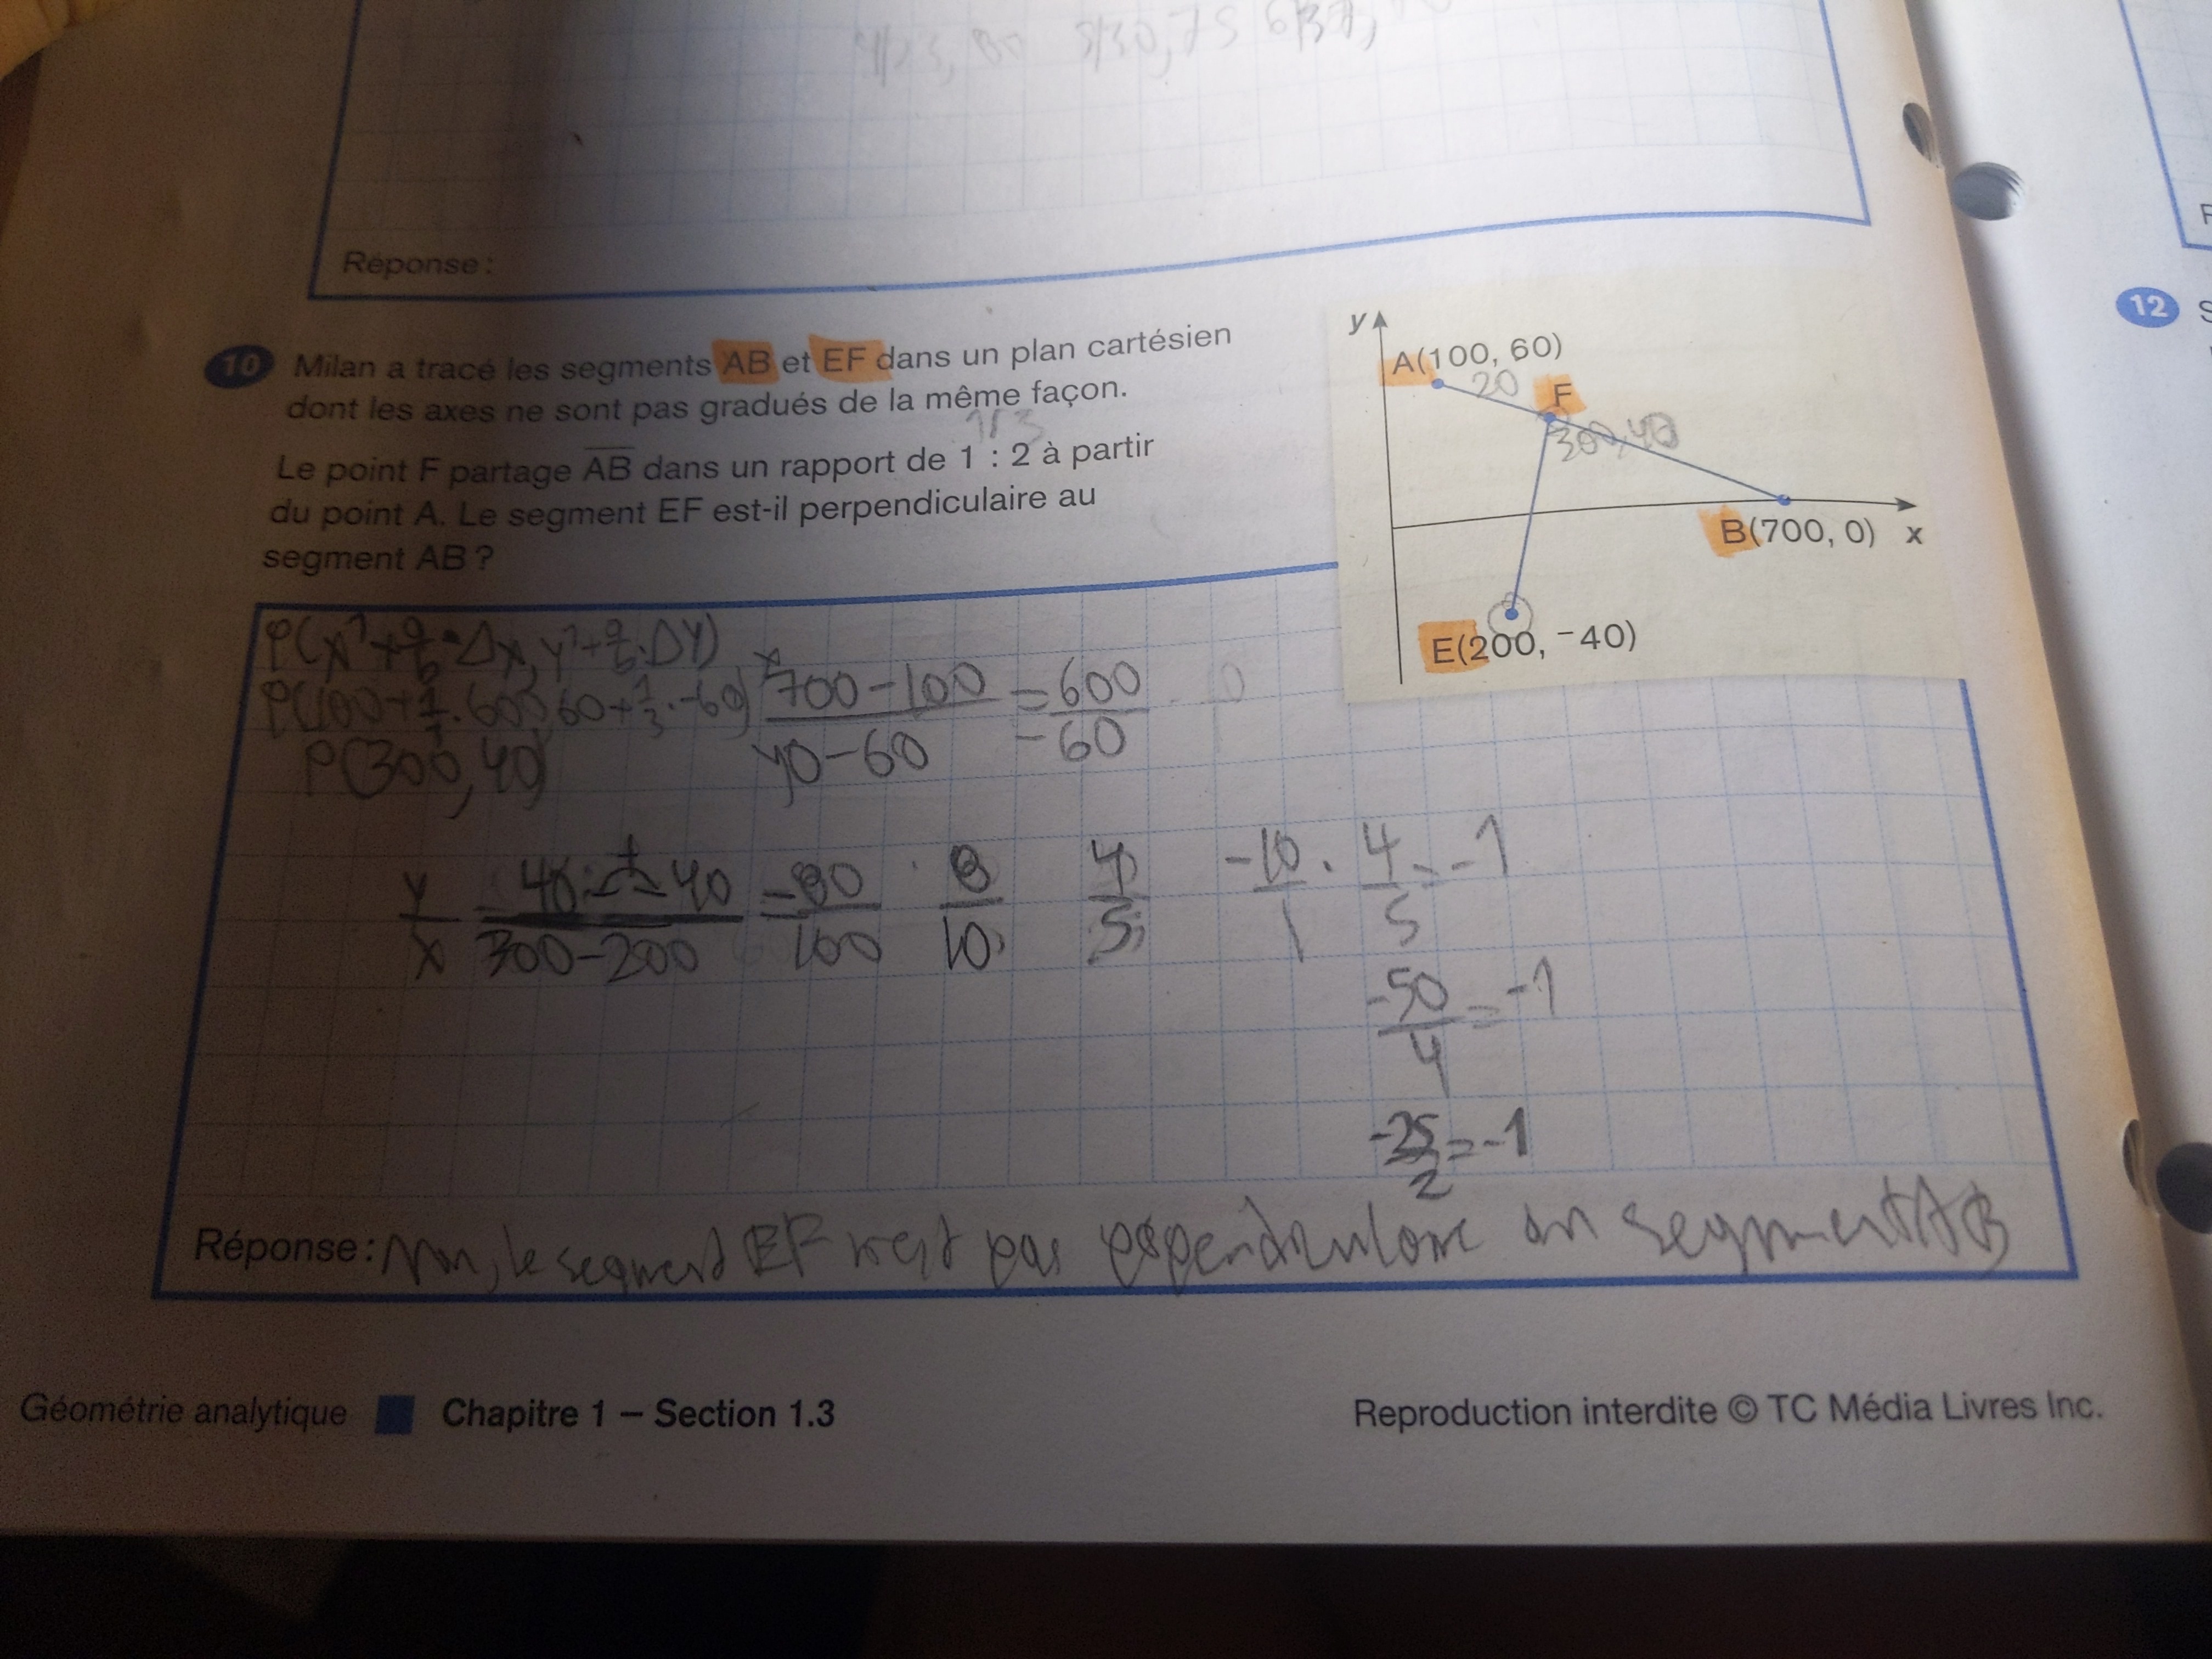 Réponse :
10 Milan a tracé les segments AB et EF dans un plan cartésien
dont les axes ne sont pas gradués de la même façon.
Le point F partage AB dans un rapport de 1 : 2 à partir
du point A. Le segment EF est-il perpendiculaire au
segment AB ?
y
A(100, 60)
20
F
300,40
B(700, 0) x
E(200, -40)
P(100+1/3·600,60+1/3·-60)
P(300,40)
x
700-100 = 600
40-60 -60
y 40 + 40 = 80 8 4 -10 · 4 = -1
x 300-200 100 10 5 1 5
-50 = -1
4
-25 = -1
2
Réponse : Non, le segment EF n'est pas au segment AB
Géométrie analytique Chapitre 1 – Section 1.3
Reproduction interdite © TC Média Livres Inc.
12